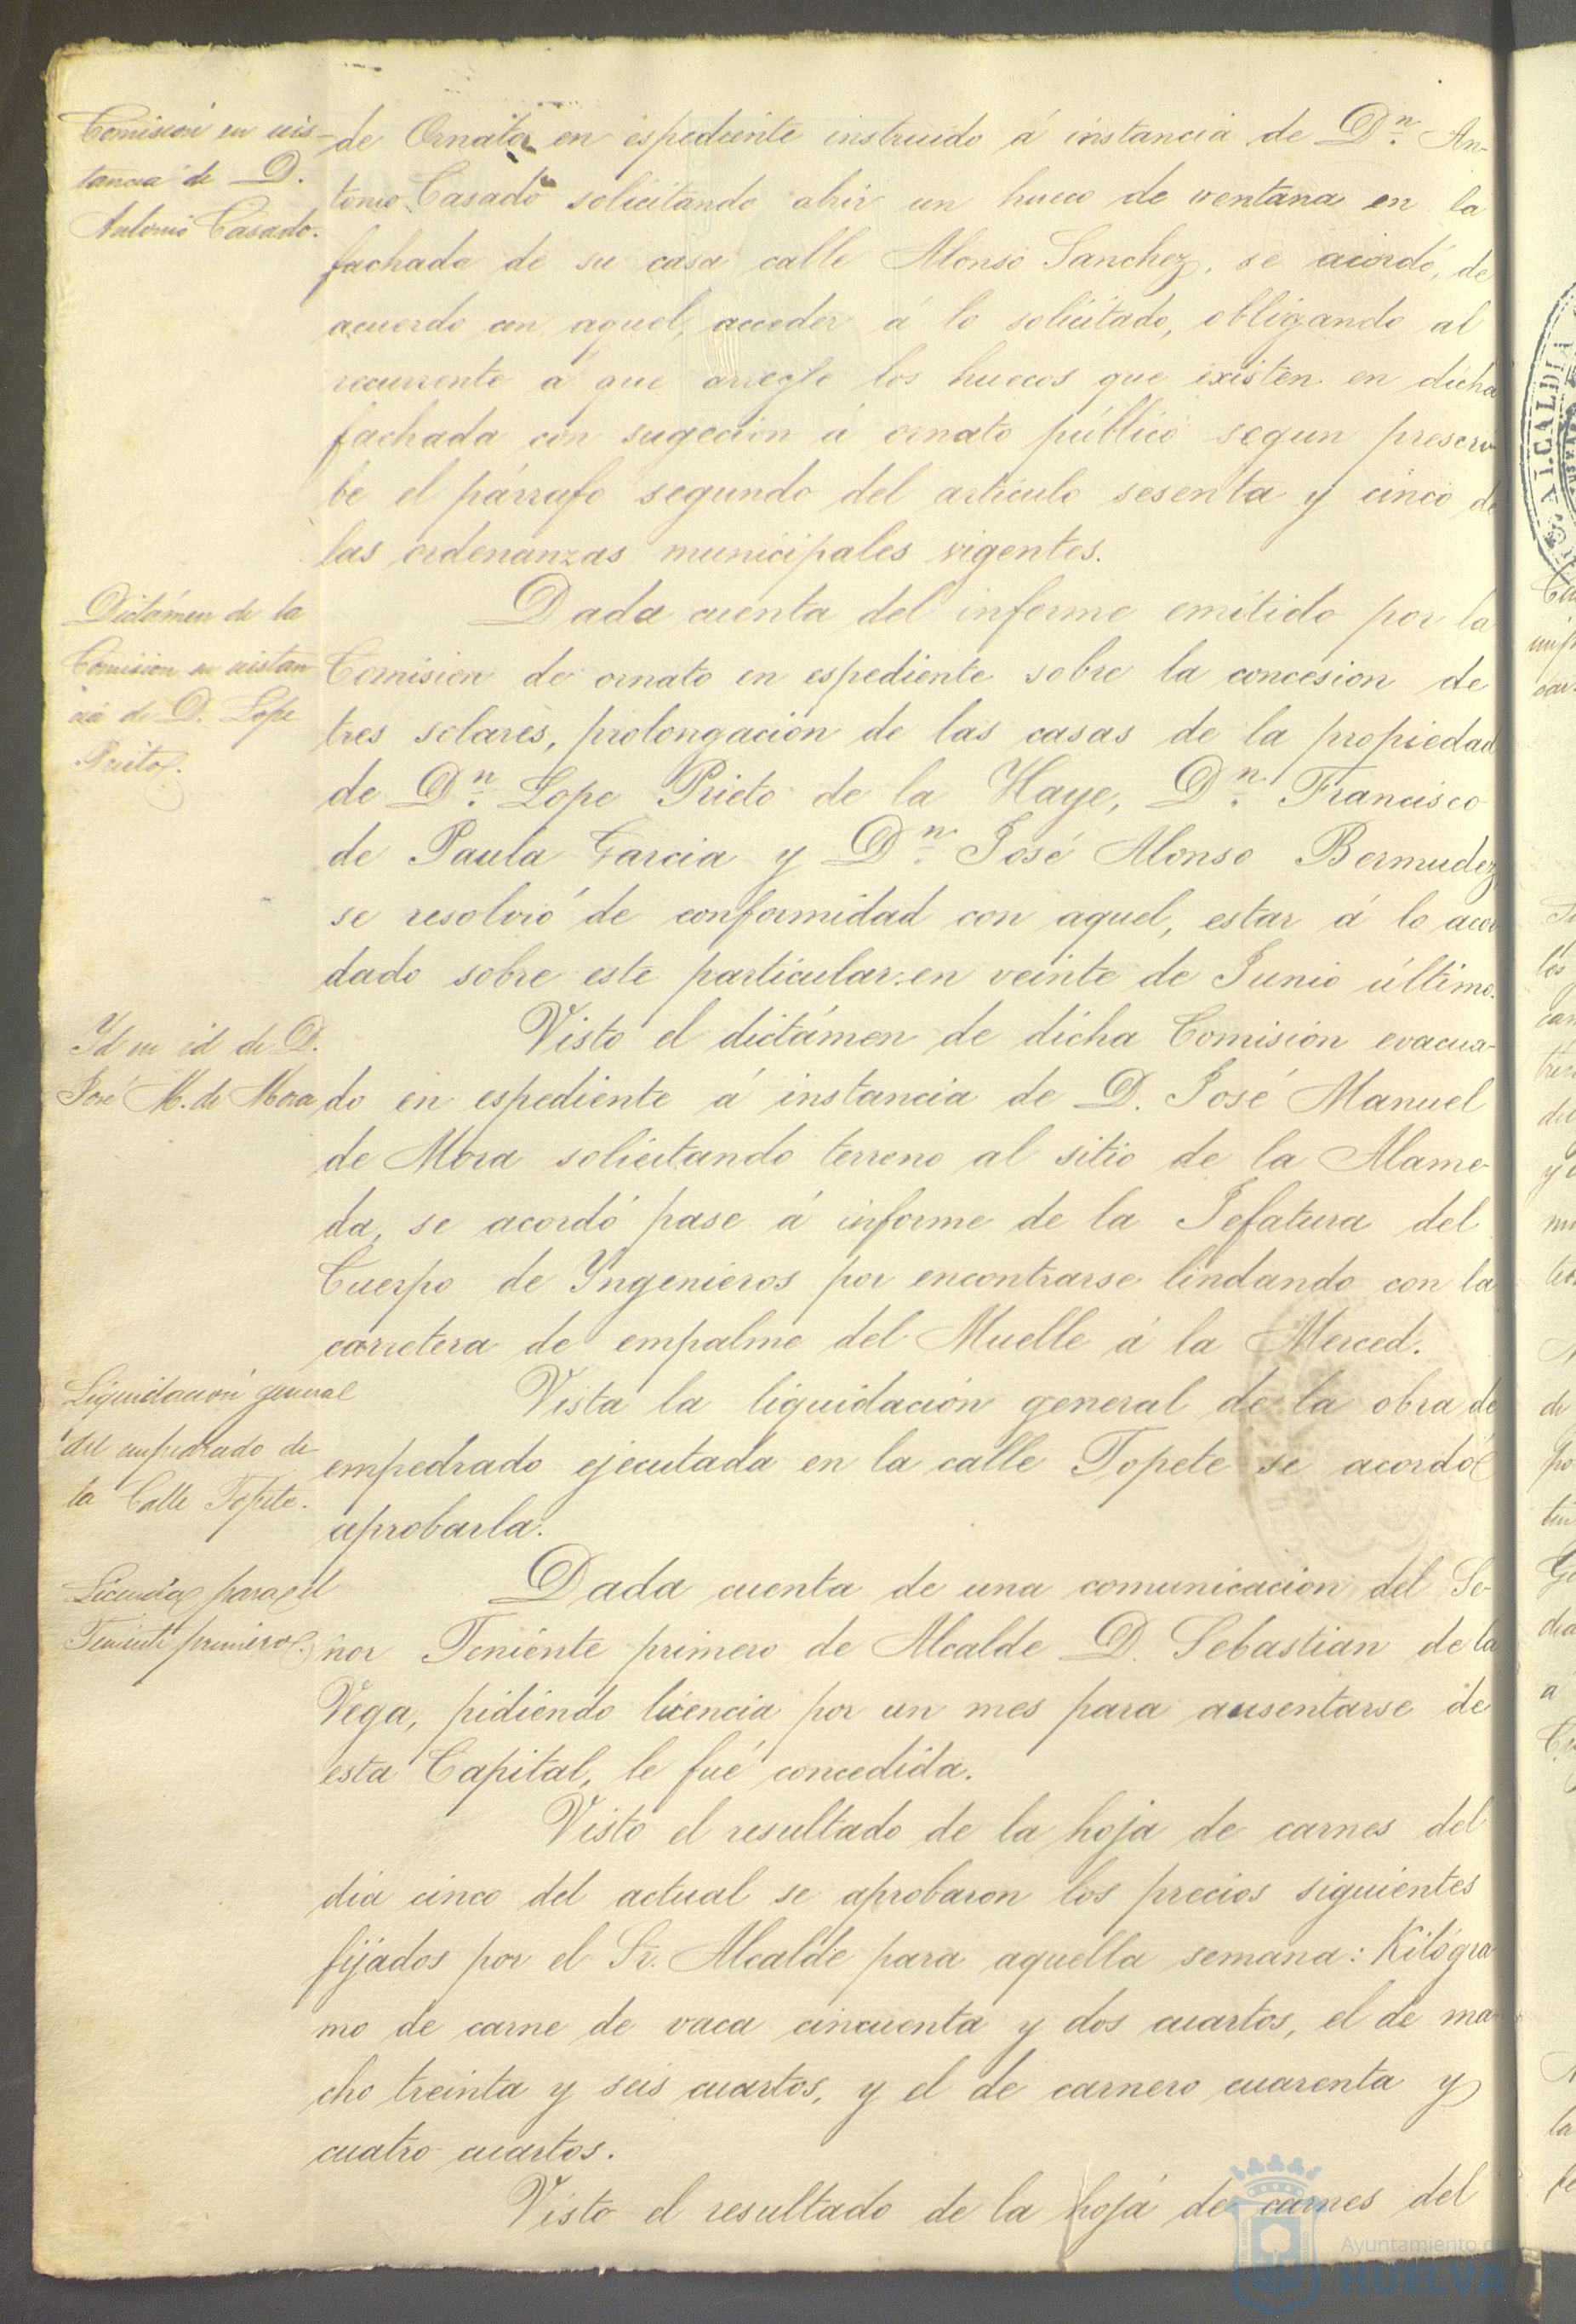 Comisión en ins-
tancia de D.
Antonio Casado.
de Ornato en espediente instruido á instancia de Dn. An-
tonio Casado solicitando abrir un hueco de ventana en la
fachada de su casa calle Alonso Sanchez, se acordó, de
acuerdo con aquel, acceder á lo solicitado, obligando al
recurrente á que arregle los huecos que existen en dicha
fachada con sugecion á ornato público segun prescri-
be el párrafo segundo del artículo sesenta y cinco de
las ordenanzas municipales vigentes.
Dictámen de la
Comision en instan-
cia de D. Lope
Prieto.
Dada cuenta del informe emitido por la
Comision de ornato en espediente sobre la concesion de
tres solares, prolongacion de las casas de la propiedad
de Dn. Lope Prieto de la Haye, Dn. Francisco
de Paula Garcia y Dn. José Alonso Bermudez
se resolvió de conformidad con aquel, estar á lo acor
dado sobre este particular en veinte de Junio último.
Yd en id de D.
José M. de Mora
Visto el dictámen de dicha Comision evacua-
do en espediente á instancia de D. José Manuel
de Mora solicitando terreno al sitio de la Alame-
da, se acordó pase á informe de la Jefatura del
Cuerpo de Yngenieros por encontrarse lindando con la
carretera de empalme del Muelle á la Merced.
Liquidacion general
del empedrado de
la Calle Topete.
Vista la liquidación general de la obra de
empedrado ejecutada en la calle Topete se acordó
aprobarla.
Licencia para el
Teniente primero.
Dada cuenta de una comunicacion del Se-
ñor Teniente primero de Alcalde D. Sebastian de la
Vega, pidiendo licencia por un mes para ausentarse de
esta Capital, le fué concedida.
Visto el resultado de la hoja de carnes del
dia cinco del actual se aprobaron los precios siguientes
fijados por el Sr. Alcalde para aquella semana: Kilógra
mo de carne de vaca cincuenta y dos cuartos, el de ma-
cho treinta y seis cuartos, y el de carnero cuarenta y
cuatro cuartos.
Visto el resultado de la hoja de carnes del
Ayuntamiento de
HUELVA